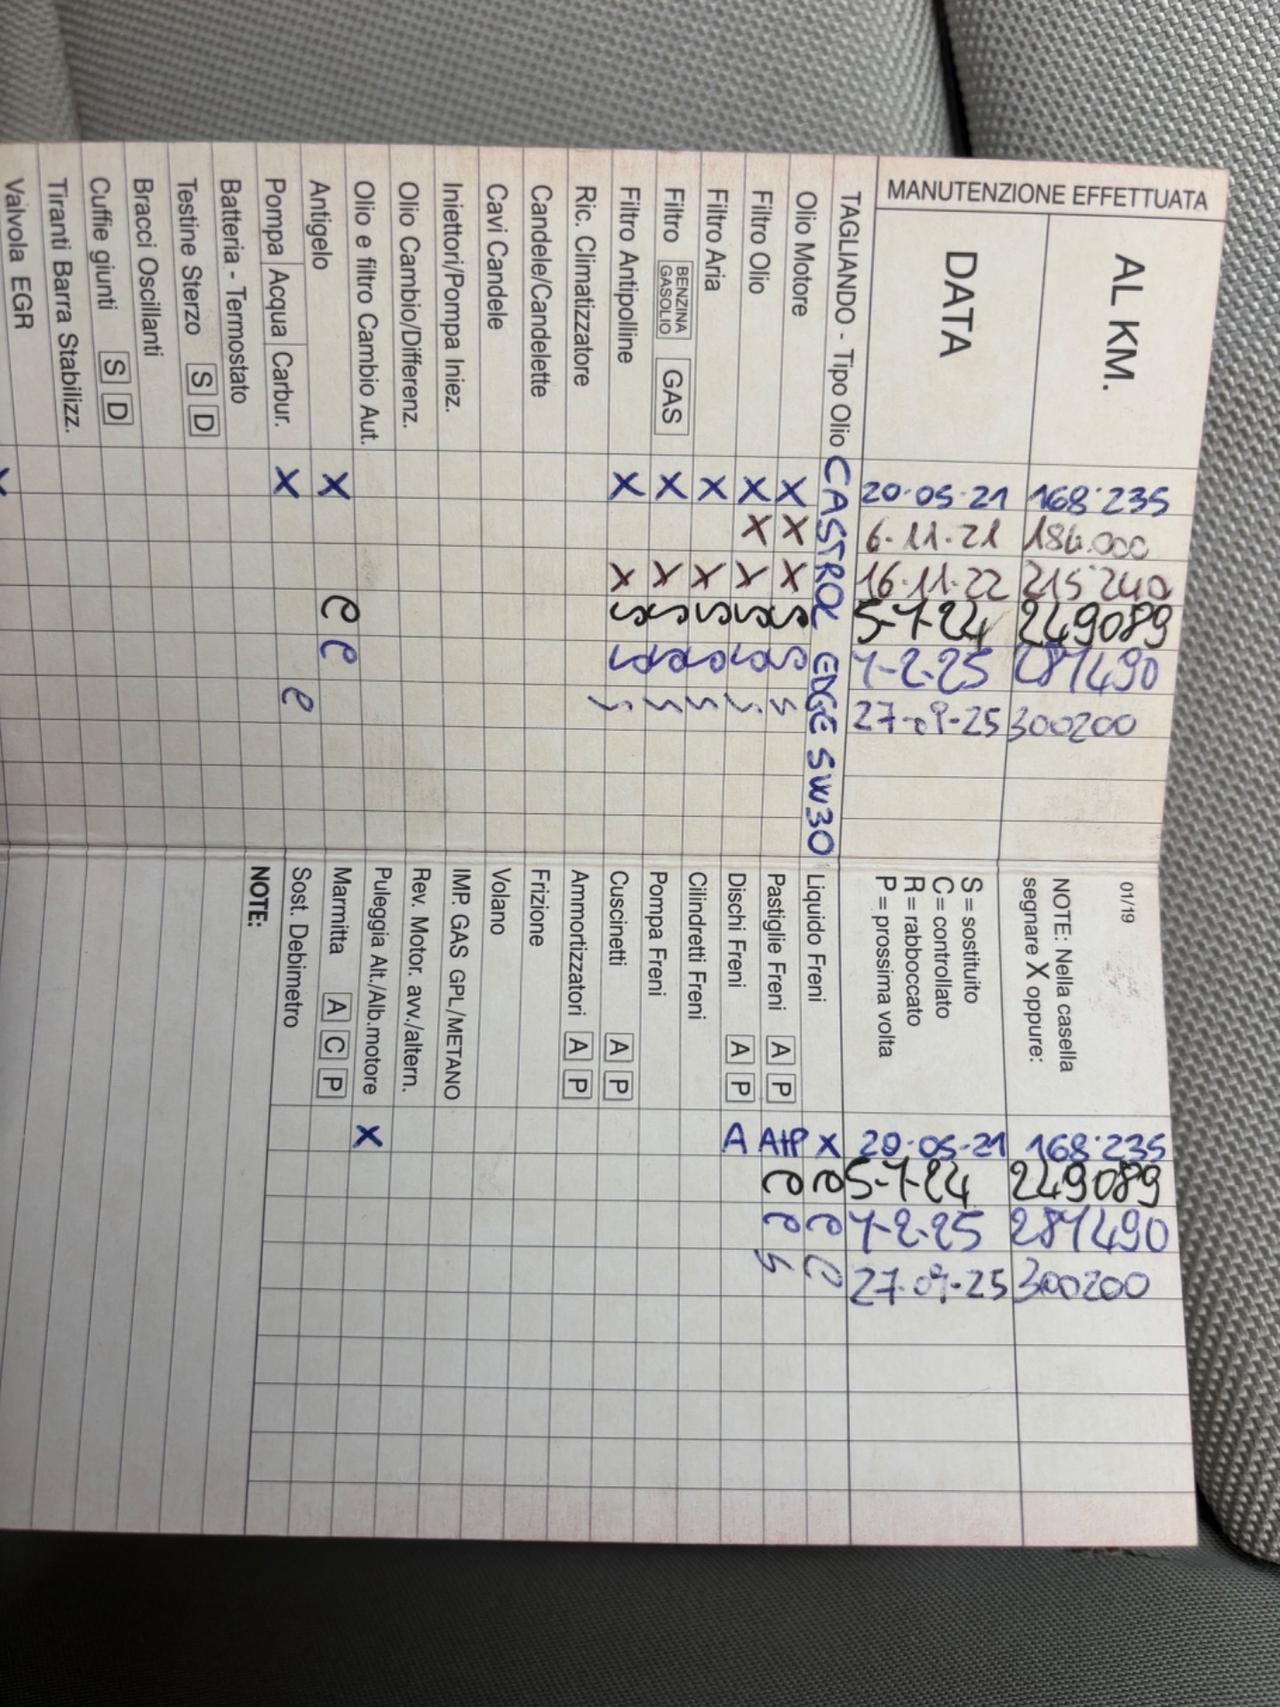 MANUTENZIONE EFFETTUATA
AL KM. 168·235 184.000 215·240 249089 281490 300200
DATA 20·05·21 6·11·21 16·11·22 5-7-24 7-2-25 27-09-25
TAGLIANDO - Tipo Olio CASTROL EDGE 5W30
Olio Motore X X X S S S
Filtro Olio X X X S S S
Filtro Aria X X S S S
Filtro BENZINA GASOLIO GAS X X S S S
Filtro Antipolline X X S S S
Ric. Climatizzatore
Candele/Candelette
Cavi Candele
Iniettori/Pompa Iniez.
Olio Cambio/Differenz.
Olio e filtro Cambio Aut.
Antigelo X C C
Pompa Acqua Carbur. X C
Batteria - Termostato
Testine Sterzo S D
Bracci Oscillanti
Cuffie giunti S D
Tiranti Barra Stabilizz.
Valvola EGR X
01/19
NOTE: Nella casella
segnare X oppure:
S = sostituito
C = controllato
R = rabboccato
P = prossima volta
168·235 249089 281490 300200
20·05·21 5-7-24 7-2-25 27-09-25
Liquido Freni X C C C
Pastiglie Freni A P A+P C C S
Dischi Freni A P A
Cilindretti Freni
Pompa Freni
Cuscinetti A P
Ammortizzatori A P
Frizione
Volano
IMP. GAS GPL/METANO
Rev. Motor. avv./altern.
Puleggia Alt./Alb.motore X
Marmitta A C P
Sost. Debimetro
NOTE: